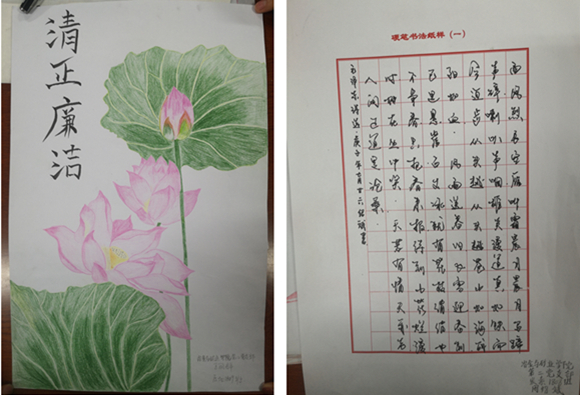 清正廉洁
硬笔书法纸样（一）
西风烈 长空雁叫霜晨月 霜晨月 马蹄
声碎 喇叭声咽 雄关漫道真如铁 而
今迈步从头越 从头越 苍山如海 残
阳如血 风雨送春归 飞雪迎春到
已是悬崖百丈冰 犹有花枝俏 俏也
不争春 只把春来报 待到山花烂漫
时 她在丛中笑 天若有情天亦老
人间正道是沧桑
毛泽东诗选 庚子年 书